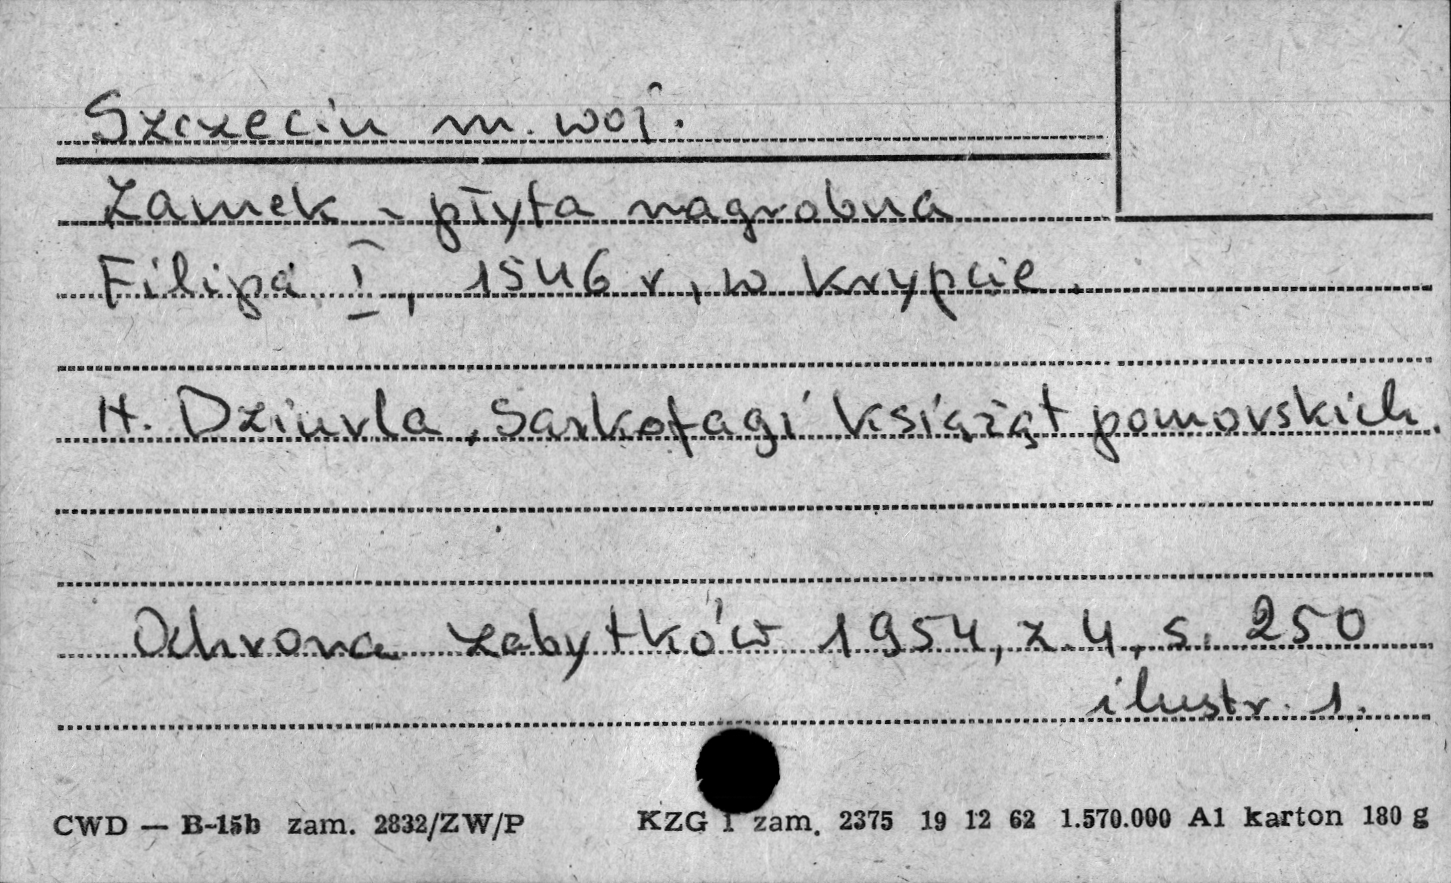 Szczecin m. woj.
Zamek - płyta nagrobna
Filipa I, 1546 r, w krypcie.
H. Dziurla, Sarkofagi książąt pomorskich.
Ochrona zabytków 1954, z. 4, s. 250
ilustr. 1.
CWD — B-15b zam. 2832/ZW/P KZG 1 zam. 2375 19 12 62 1.570.000 A1 karton 180 g